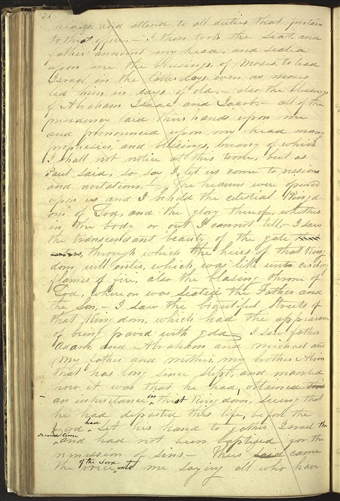 and attend to all duties that pertain
to that office. I then took the seat, and
father annoint my head, and sealed
upon me the blessings, of Moses to lead
Israel in the latter days even as moses
led him in days of old, also the blessings
of Abraham Isaac and Jacob. all of the
presidency laid their hands upon me
and pronounced upon my head many
prophesies, and blessings, many of which
I shall not notice at this time, but as
Paul said, so say I, let us come to vissions
and revelations, The heavens were opened
upon us and I beheld the celestial King
dom of God, and the glory thereof, whether
in the body or out I cannot tell, I saw
the transcendant beauty of the gate
through which the heirs of that King
dom will enter, which was like unto circling
flames of fire, also the blasing throne of
God, whereon was seated the Father and
the Son, I saw the beautiful streets of
that Kingdom, which had the appearance
of being paved with gold I saw father
Adam and Abraham and Michael and
my father and mother, my brother Alvin
that has long since slept, and marvled
how it was that he had obtained
an inheritance in that Kingdom, seeing that
he had departed this life, before the
Lord had set his hand to gather Israel the
second time and had not been baptised for the
remission of sins Thus came
the voice of the Lord unto me saying all who have